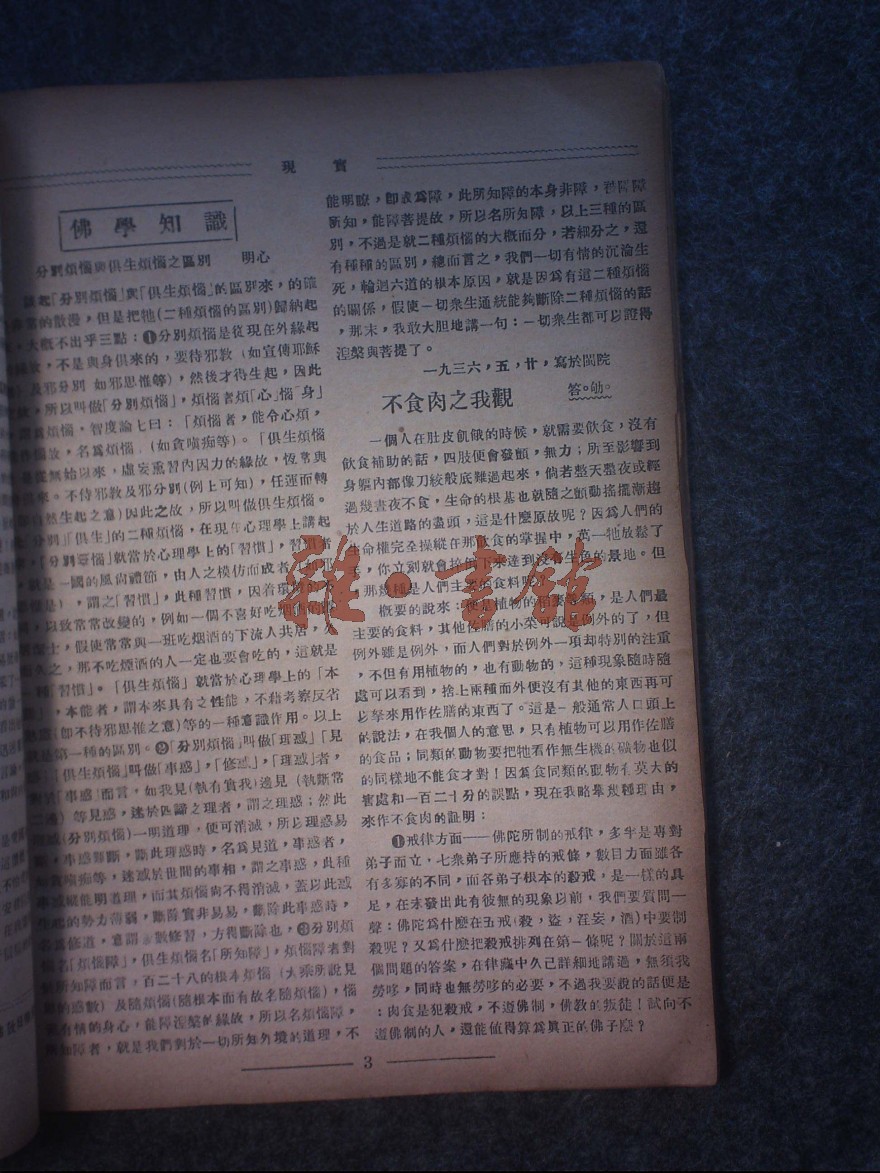 現實
佛學知識
分別煩惱與俱生煩惱之區別 明心
起「分別煩惱」與「俱生煩惱」的區別來，的確
常的散漫，但是把牠(二種煩惱的區別)歸納起
大概不出乎三點：❶分別煩惱是從現在外緣起
故，不是與身俱來的，要待邪教(如宣傳耶穌
及邪分別 如邪思惟等)，然後才得生起，因此
，所以叫做「分別煩惱」，煩惱者煩「心」惱「身」
煩惱、智度論七曰：「煩惱者，能令心煩，
作惱故，名爲煩惱」(如貪嗔痴等)。「俱生煩惱
從無始以來，虛妄熏習內因力的緣故，恆常與
來。不待邪教及邪分別(例上可知)，任運而轉
自然生起之意)因此之故，所以叫做俱生煩惱。
別」「俱生」的二種煩惱，在現在心理學上講起
「分別煩惱」就當於心理學上的「習慣」，習慣者
就是一國的風尚禮節，由人之模仿而成者
)，謂之「習慣」，此種習慣，因着環境的
，以致常常改變的，例如一個不喜好吃烟酒的
士，假使常常與一班吃烟酒的下流人共居，
久之，那不吃煙酒的人一定也要會吃的，這就是
種「習慣」。「俱生煩惱」就當於心理學上的「本
」，本能者，謂本來具有之性能，不藉考察反省
(卽不待邪思惟之意)等的一種意識作用。以上
是第一種的區別。❷「分別煩惱」叫做「理惑」「見
「俱生煩惱」叫做「事惑」，「修惑」，「理惑」者，
於「事惑」而言，如我見(執有實我)邊見(執斷常
)等見惑，迷於四諦之理者，謂之理惑；然此
惑(分別煩惱)一明道理，便可消滅，所以理惑易
，事惑難斷，斷此理惑時，名爲見道，事惑者，
貪嗔痴等，迷惑於世間的事相，謂之事惑，此種
惑縱能明者理，而其煩惱尙不得消滅，蓋以此惑
起的勢力薄弱，斷除實非易易，斷除此事惑時，
名爲修道，意謂 數修習，方能斷除也，❸分別煩
名「煩惱障」，俱生煩惱名「所知障」，煩惱障者對
所知障而言，百二十八的根本煩惱(大乘所說見
的惑數)及隨煩惱(隨根本而有故名隨煩惱)，惱
有情的身心，能障涅槃的緣故，所以名煩惱障，
知障者，就是我們對於一切所知外境的道理，不
能明暸，卽或爲障，此所知障的本身非障，
新知，能障菩提故，所以名所知障，以上三種的區
別，不過是就二種煩惱的大概而分，若細分之，還
有種種的區別，總而言之，我們一切有情的沉淪生
死，輪迴六道的根本原因，就是因爲有這二種煩惱
的關係，假使一切衆生通統能夠斷除二種煩惱的話
，那末，我敢大胆地講一句：一切衆生都可以證得
涅槃與菩提了。
一九三六，五，廿，寫於閩院
不食肉之我觀 答。劬。
一個人在肚皮飢餓的時候，就需要飲食，沒有
飲食補助的話，四肢便會發顫，無力；所至影響到
身軀內部像刀絞般底難過起來，倘若整天整夜或經
過幾晝夜不食，生命的根基也就隨之顫動搖擺漸趨
於人生道路的盡頭，這是什麼原故呢？因爲人們的
生命權完全操縱在那飲食的掌握中，萬一牠放鬆了
手，你立刻就會掉倒下來達到沒有生色的景地。但
那幾種是人們主要的食料呢？
概要的說來：便是植物的稻麥等類，是人們最
主要的食料，其他佐膳的小菜可說是例外的了，但
例外雖是例外，而人們對於例外一項却特別的注重
，不但有用植物的，也有動物的，這種現象隨時隨
處可以看到，捨上兩種而外便沒有其他的東西再可
以拏來用作佐膳的東西了。這是一般通常人口頭上
的說法，在我個人的意思，只有植物可以用作佐膳
的食品；同類的動物要把牠看作無生機的礦物也似
的同樣地不能食才對！因爲食同類的動物有莫大的
害處和一百二十分的誤點，現在我略舉幾種理由，
來作不食肉的証明：
❶戒律方面——佛陀所制的戒律，多半是專對
弟子而立，七衆弟子所應持的戒條，數目方面雖各
有多寡的不同，而各弟子根本的殺戒，是一樣的具
足，在未發出此有彼無的現象以前，我們要質問一
聲：佛陀爲什麼在五戒(殺，盜，淫妄，酒)中要制
殺呢？又爲什麼把殺戒排列在第一條呢？關於這兩
個問題的答案，在律藏中久已詳細地講過，無須我
勞哆，同時也無勞哆的必要，不過我要說的話便是
：肉食是犯殺戒，不遵佛制，佛教的叛徒！試向不
遵佛制的人，還能値得算爲眞正的佛子麼？
3
雜·書館